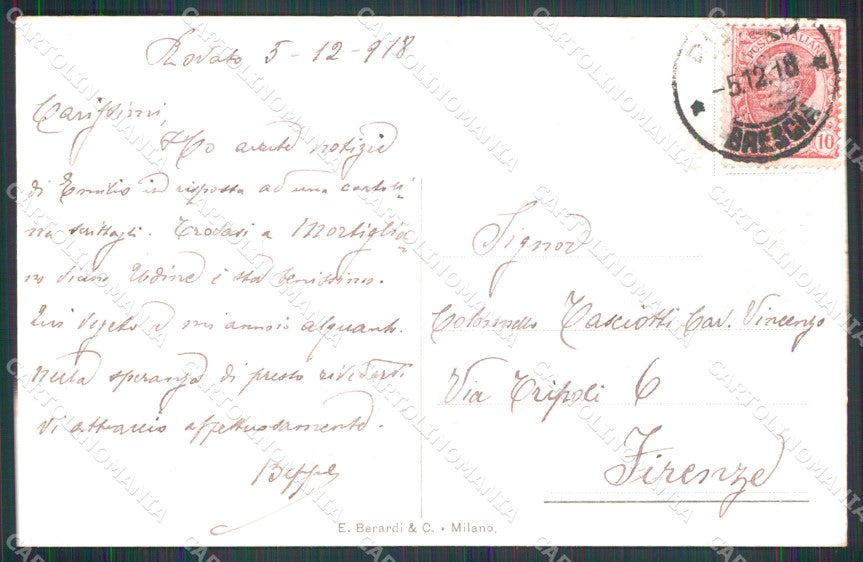 Rovato, 5-12-918
Carissimi,
Ho avute notizie
di Emilio in risposta ad una cartoli-
na scrittagli. Trovasi a Mortiglia-
no vicino Udine e sta benissimo.
Qui vegeto e mi annoio alquanto.
Nella speranza di presto rivedervi
vi abbraccio affettuosamente.
Beppe
POSTE ITALIANE
10
-5.12.18
BRESCIA
Signor
Colonnello Casciotti Cav. Vincenzo
Via Tripoli 6
Firenze
E. Berardi & C. • Milano.
CARTOLINOMANIA